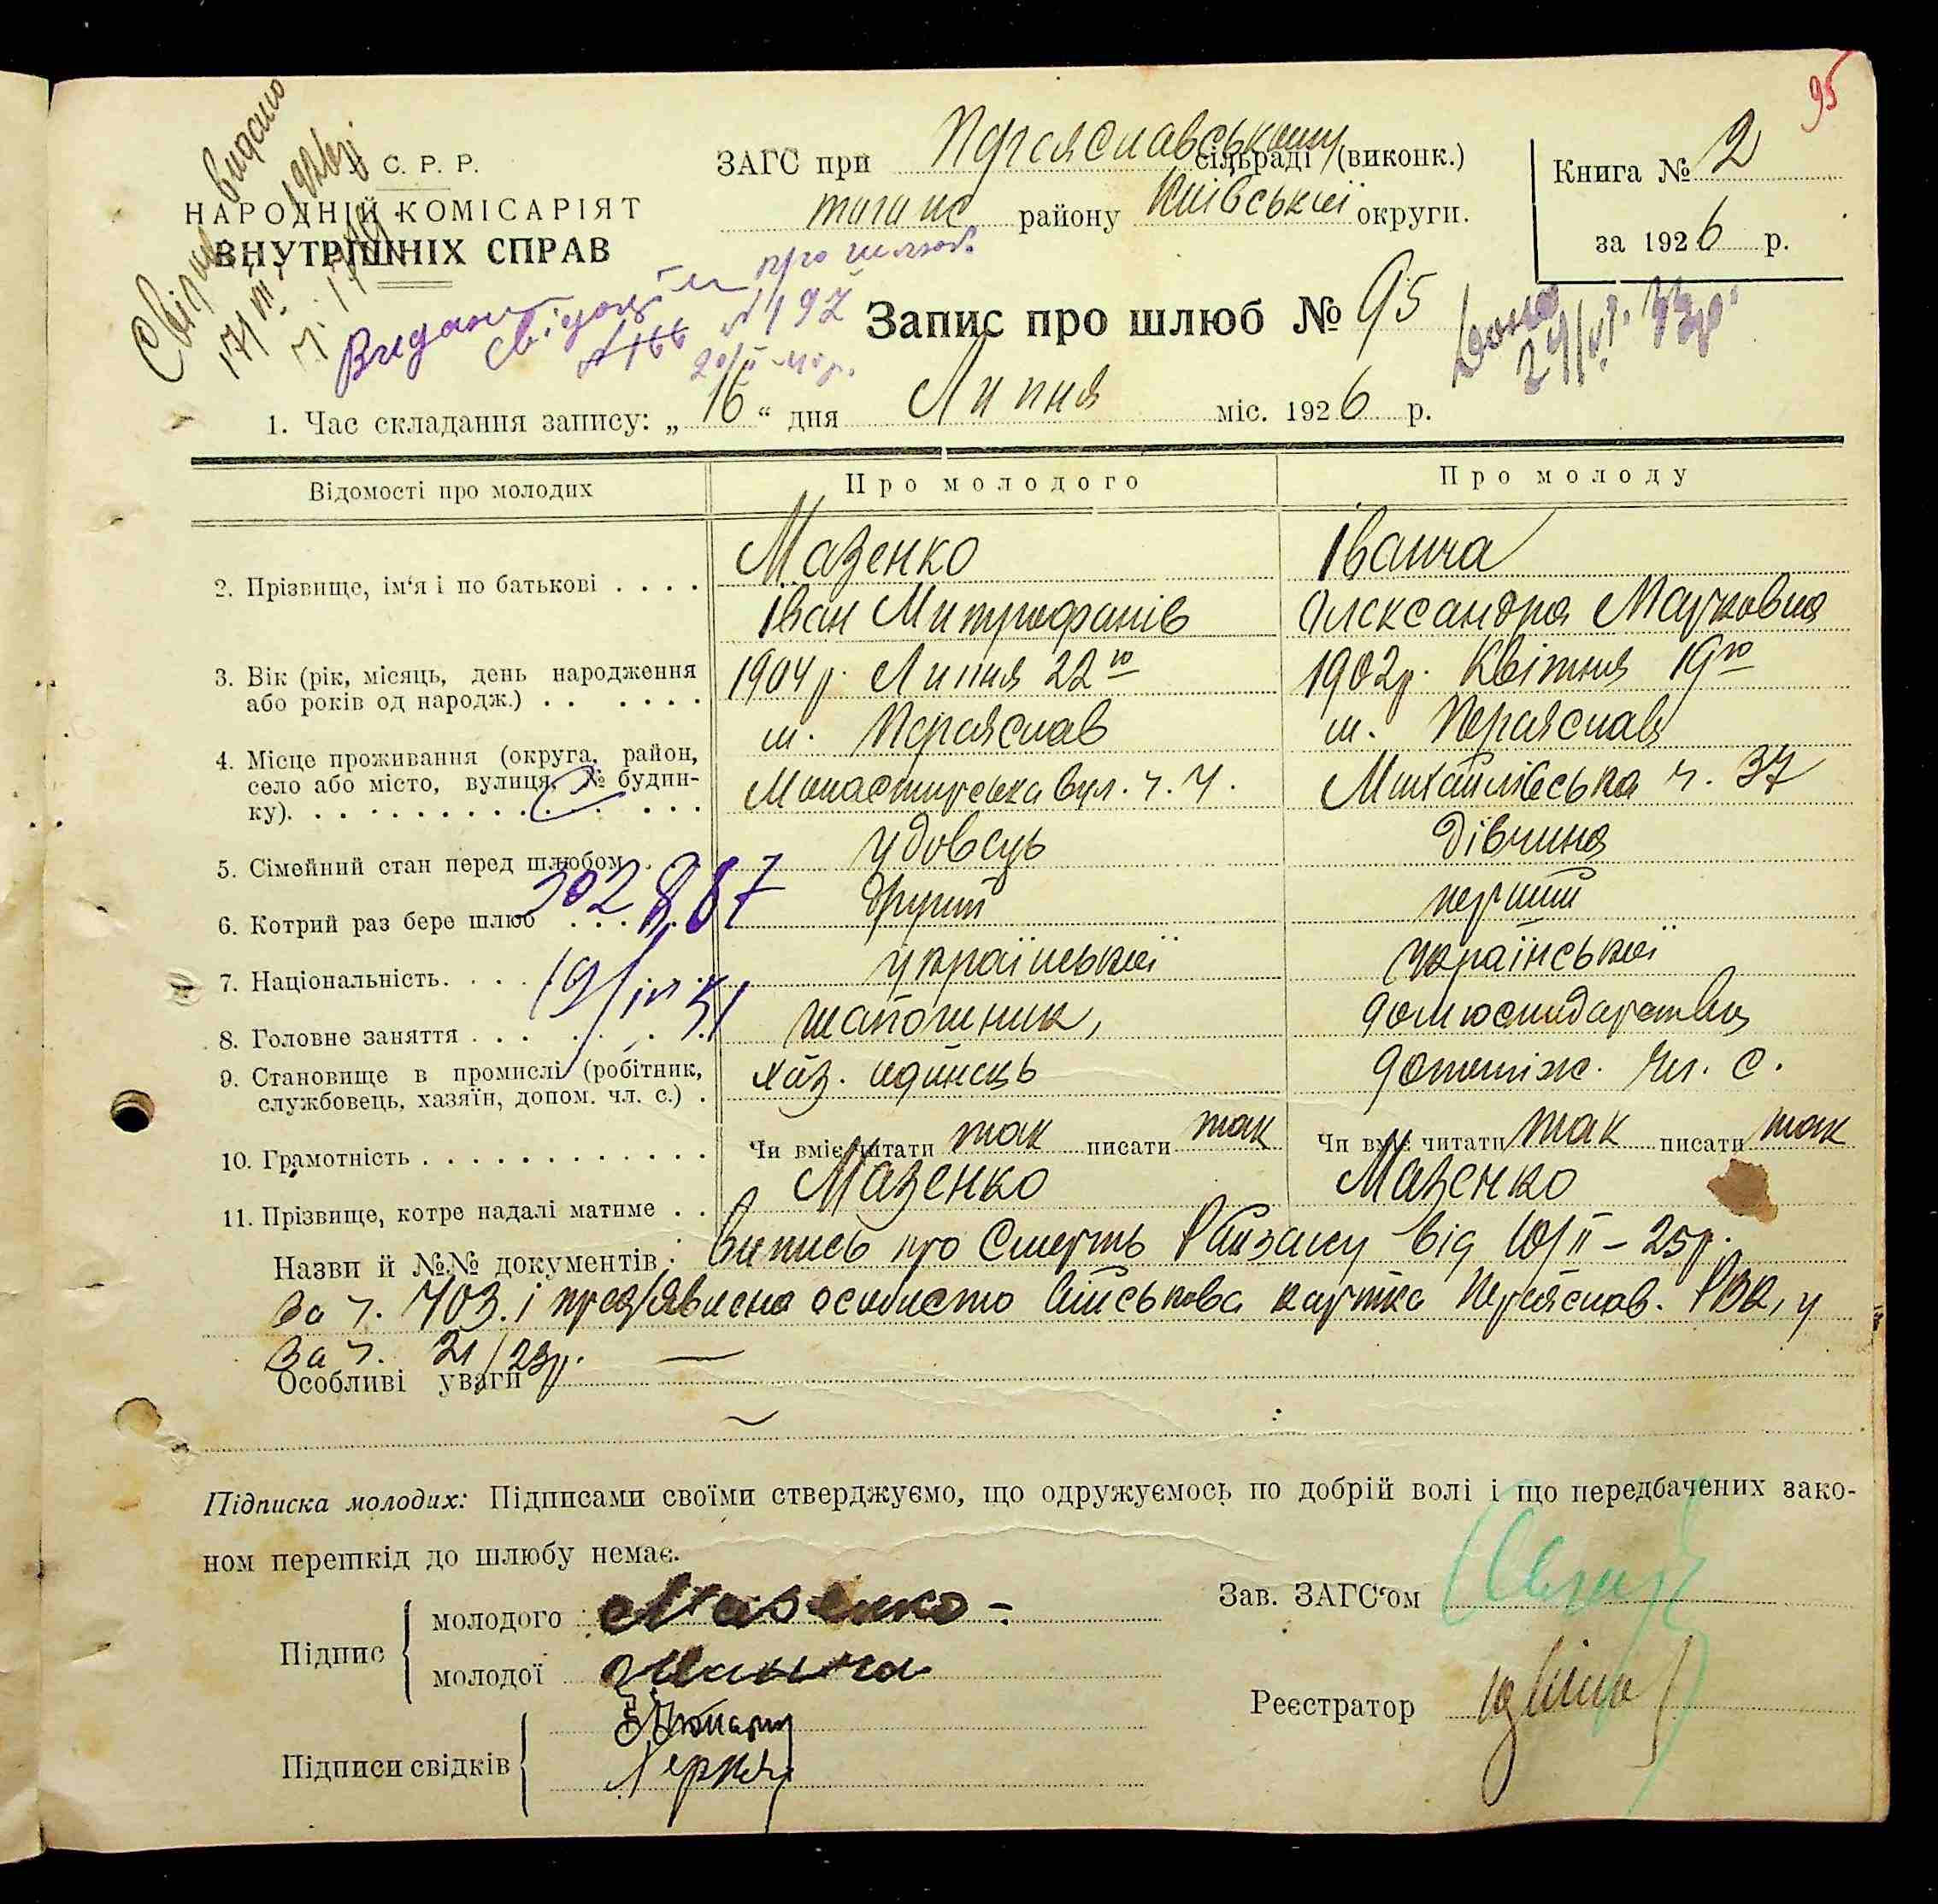 95
Свідоц видано
С. Р. Р.
НАРОДНІЙ КОМІСАРІЯТ
ВНУТРІШНІХ СПРАВ
ЗАГС при Переяславському сільраді (виконк.)
району Київської округи.
Книга № 2
за 1926 р.
Видані свідоц про шлюб
№ 166 № 197
Запис про шлюб № 95
1. Час складання запису: „16“ дня Липня міс. 1926 р.
Відомості про молодих Про молодого Про молоду
2. Прізвище, ім‘я і по батькові . . . . Мазенко Іванча
Іван Митрофанів Олександра Марковна
3. Вік (рік, місяць, день народження 1904 р. Липня 22го 1902 р. Квітня 19го
або років од народж.) . . . . . .
4. Місце проживання (округа, район, м. Переяслав м. Переяслав
село або місто, вулиця, № будин- Монастирська вул. ч. 4. Михайлівська ч. 37
ку). . . . . . . . . . . . . .
5. Сімейний стан перед шлюбом . . удовець дівчина
6. Котрий раз бере шлюб . . . . . другий перший
7. Національність. . . . української української
8. Головне заняття . . . . . . шапошник,
9. Становище в промислі (робітник, хаз. одинець допоміж. чл. с.
службовець, хазяїн, допом. чл. с.) .
10. Грамотність . . . . . . . . . . . . . Чи вміє читати так писати так Чи вміє читати так писати так
11. Прізвище, котре надалі матиме . . Мазенко Мазенко
Назви й №№ документів: Випись про смерть від 10/II – 25р.
За ч. 703. і пред'явлена особисто військова картка Переяслав. РВК,
За ч. 21/23р. —
Особливі уваги
Підписка молодих: Підписами своїми стверджуємо, що одружуємось по добрій волі і що передбачених зако-
ном перешкід до шлюбу немає.
Підпис молодого Мазенко
молодої Іванча
Зав. ЗАГС‘ом
Реєстратор
Підписи свідків